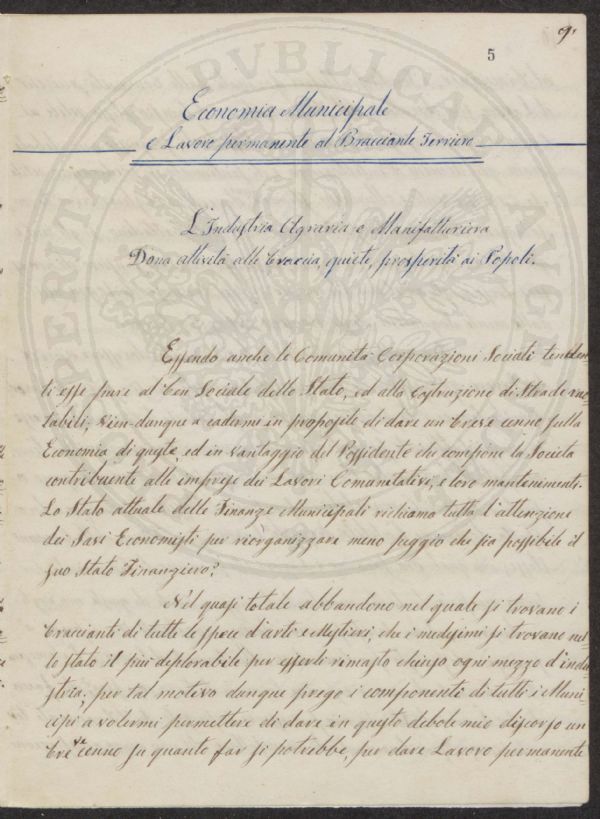 9.
5
Economia Municipale
e Lavoro permanente al Bracciante Terriero
L'Industria Agraria e Manifatturiera
Dona attività alle braccia, quiete, prosperità ai Popoli.
Essendo anche le Comunità Corporazioni Sociali tenden-
ti esse pure al ben Sociale dello Stato, ed alla Costruzione di Strade ruo-
tabili; vien dunque a cadermi in proposito di dare un breve cenno sulla
Economia di queste, ed in vantaggio del Possidente che compone la Società
contribuente alle imprese dei Lavori Comunitativi, e loro mantenimenti.
Lo Stato attuale delle Finanze Municipali richiama tutta l'attenzione
dei Savi Economisti per riorganizzare meno peggio che sia possibile il
suo Stato Finanziero?
Nel quasi totale abbandono nel quale si trovano i
braccianti di tutte le spece d'arte e Mestieri, che i medesimi si trovano nel-
lo stato il più deplorabile per esserle rimasto chiuso ogni mezzo d'indu-
stria; per tal motivo dunque prego i componenti di tutti i Muni-
cipi a volermi permettere di dare in questo debole mio discorso un
breve cenno su quanto far si potrebbe, per dare Lavoro permanente